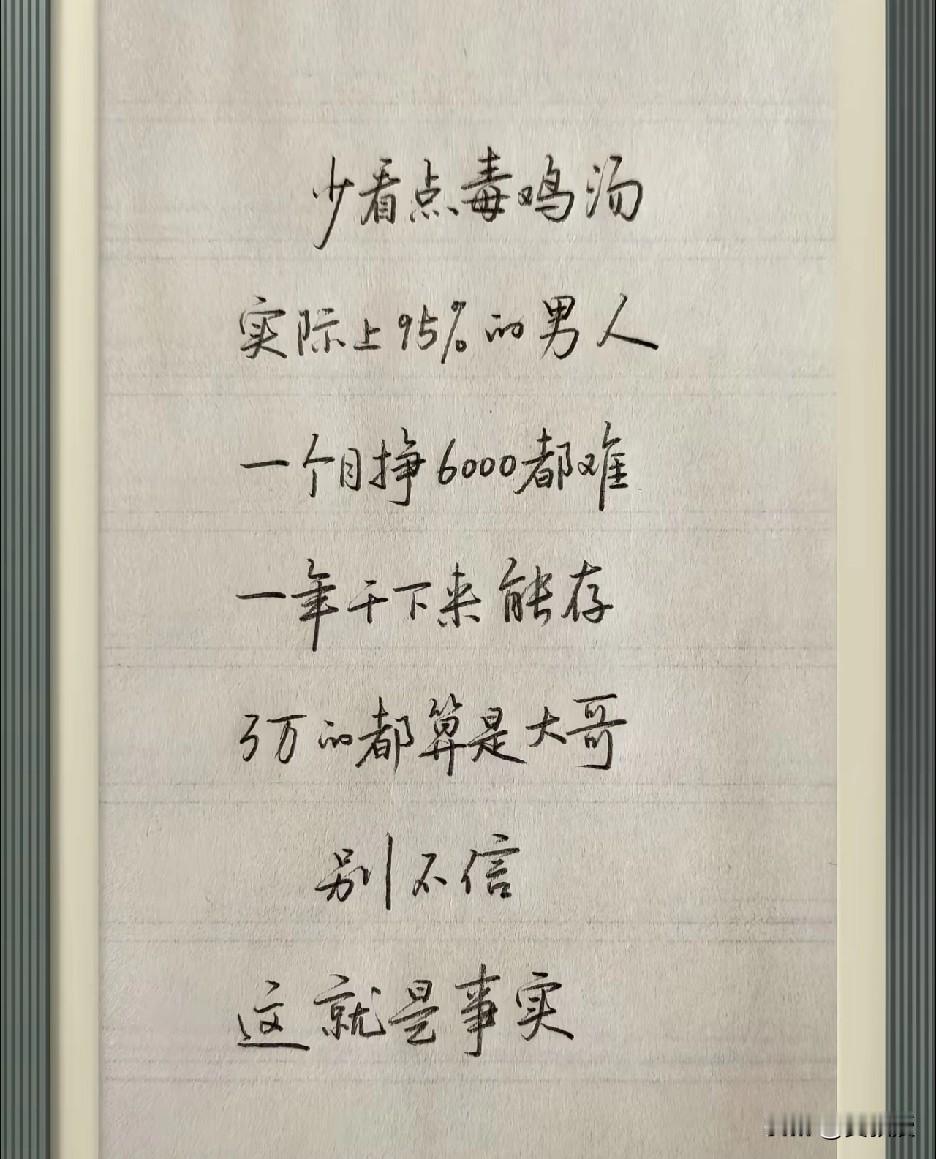 少看点毒鸡汤
实际上95%的男人
一个月挣6000都难
一年干下来能存
3万的都算是大哥
别不信
这就是事实